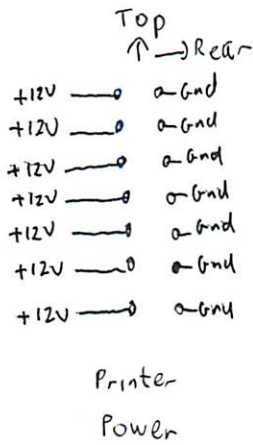 Top
↑ → Rear
+12V Gnd
+12V Gnd
+12V Gnd
+12V Gnd
+12V Gnd
+12V Gnd
+12V Gnd
Printer
Power